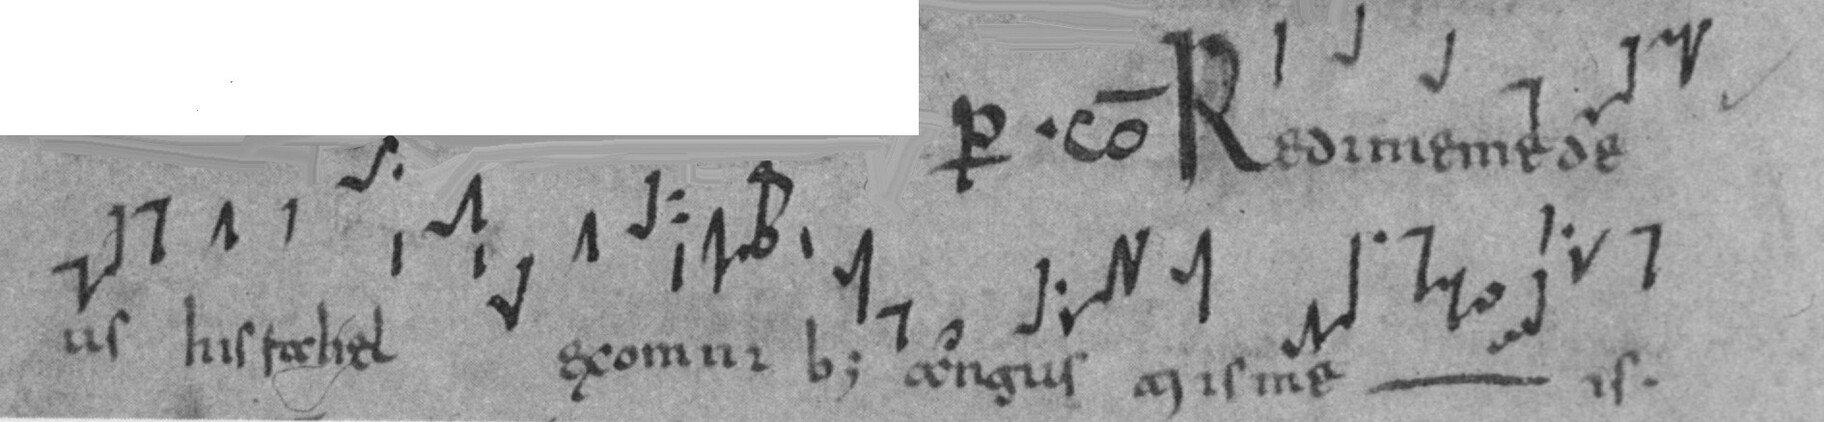 p · cō Redimeme ds
us hisrahel exomni b; angus tijs me is.